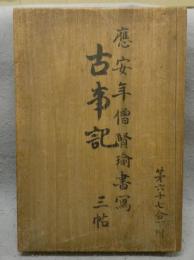 應安年僧賢瑜書寫
古事記
三帖
第六十七合